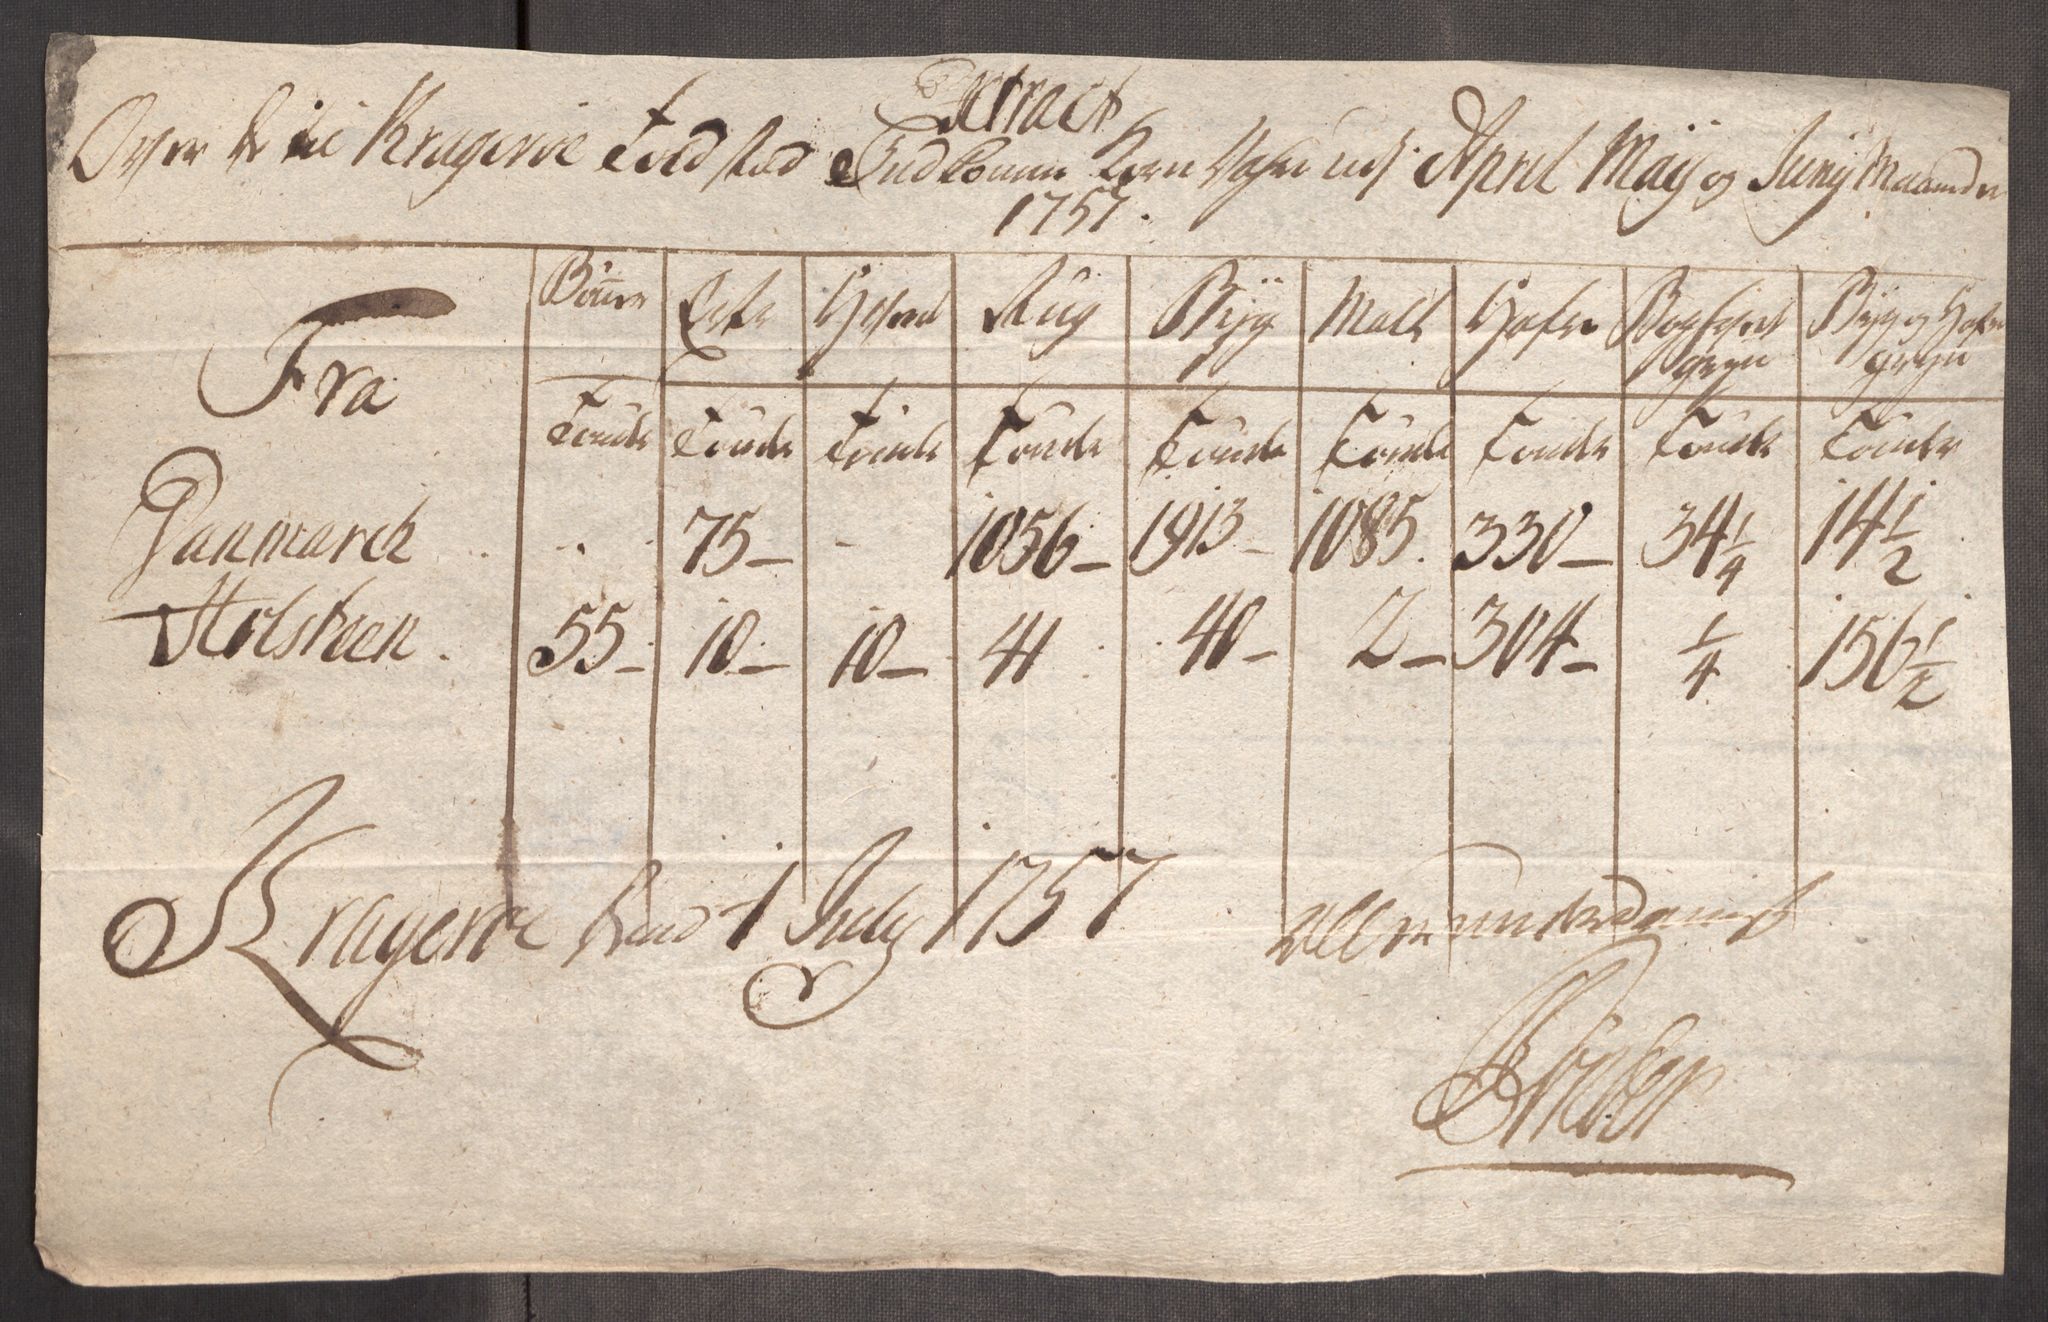 Extract
Over de til Krageröe Told sted Indkomne Korn Vahre udj April Maij og Junij Maaneder
1757.
Fra Bönner Erter Hvede Rug Byg Malt Hafre Boghvede gryn Byg og Hafre gryn
Tönder Tönder Tönder Tönder Tönder Tönder Tönder Tönder Tönder
Danmarck . . 75 - - 1056 - 1913 - 1085. 330 - 34 1/4 14 1/2
Holsteen . 55 - 10 - 10 - 41 40 - 2 - 304 - 1/4 156 1/2
Krageröe den 1 July 1757
Allerunderdanigst